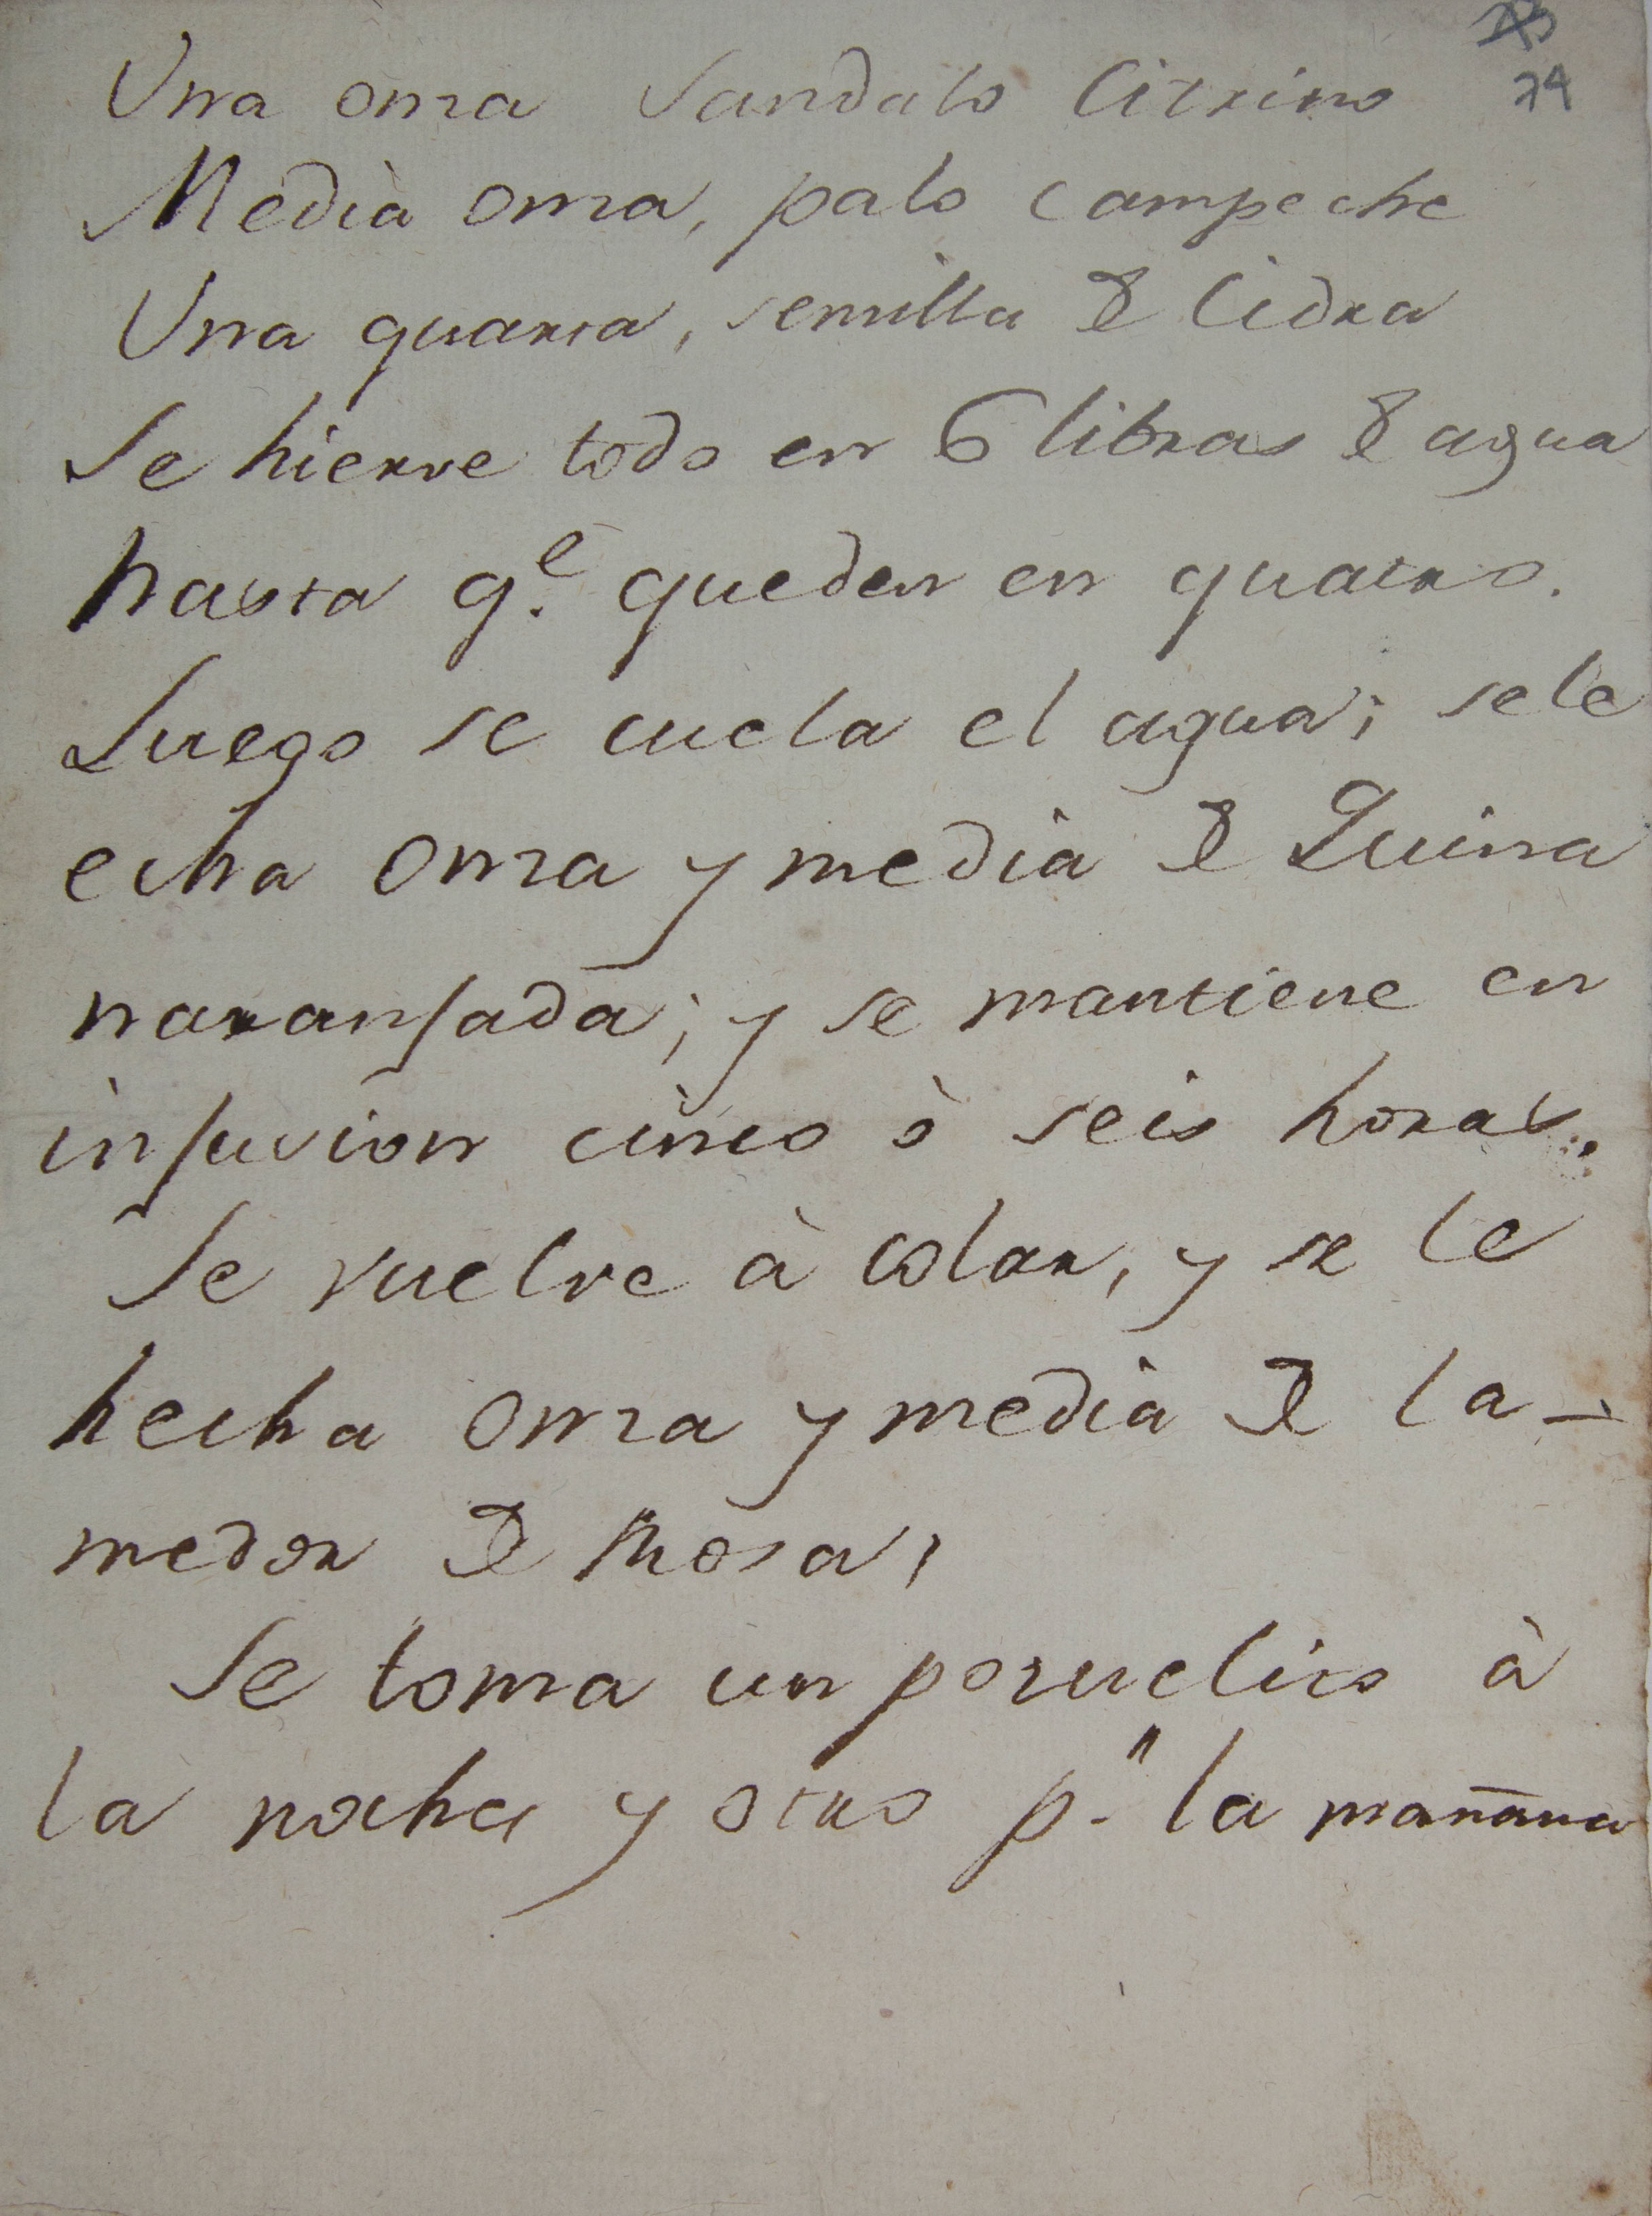 74
Una onza Sandalo Citrino
Media onza, palo campeche
Una quarta, semilla de Cidra
Se hierve todo en 6 libras de agua
hasta q.e queden en quatro.
Luego se cuela el agua; sele
echa onza y media de Quina
naranjada; y se mantiene en
infusion cinco ò seis horas.
Se vuelve à colar, y se le
hecha onza y media de la-
medor de Rosa,
Se toma un pozuelico à
la noche y otro p.a la mañana